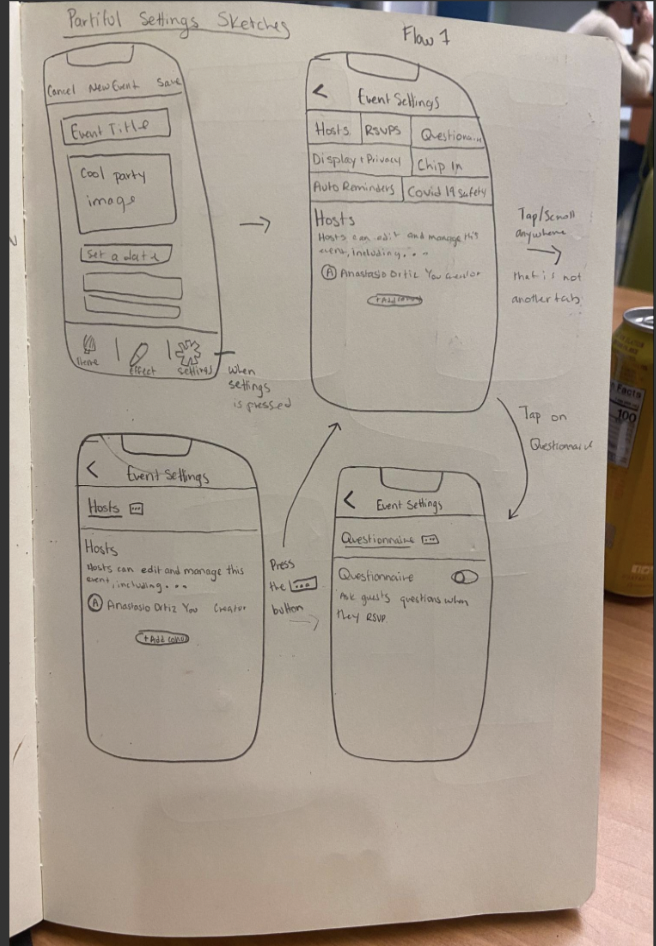 Partiful Settings Sketches
Flow 1
Cancel New Event Save
Event Title
Cool party
image
Set a date
theme
effect
settings
when
settings
is pressed
Event Settings
Hosts RSVPS Questionn...
Display + Privacy Chip In
Auto Reminders Covid 19 safety
Hosts
Hosts can edit and manage this
event, including...
A Anastasio Ortiz You Creator
Tap/Scroll
anywhere
that is not
another tab
Tap on
Questionnaire
Event Settings
Hosts ...
Hosts
Hosts can edit and manage this
event, including...
A Anastasio Ortiz You Creator
+ Add
Press
the ...
button
Event Settings
Questionnaire ...
Questionnaire
Ask guests questions when
they RSVP
Facts
100